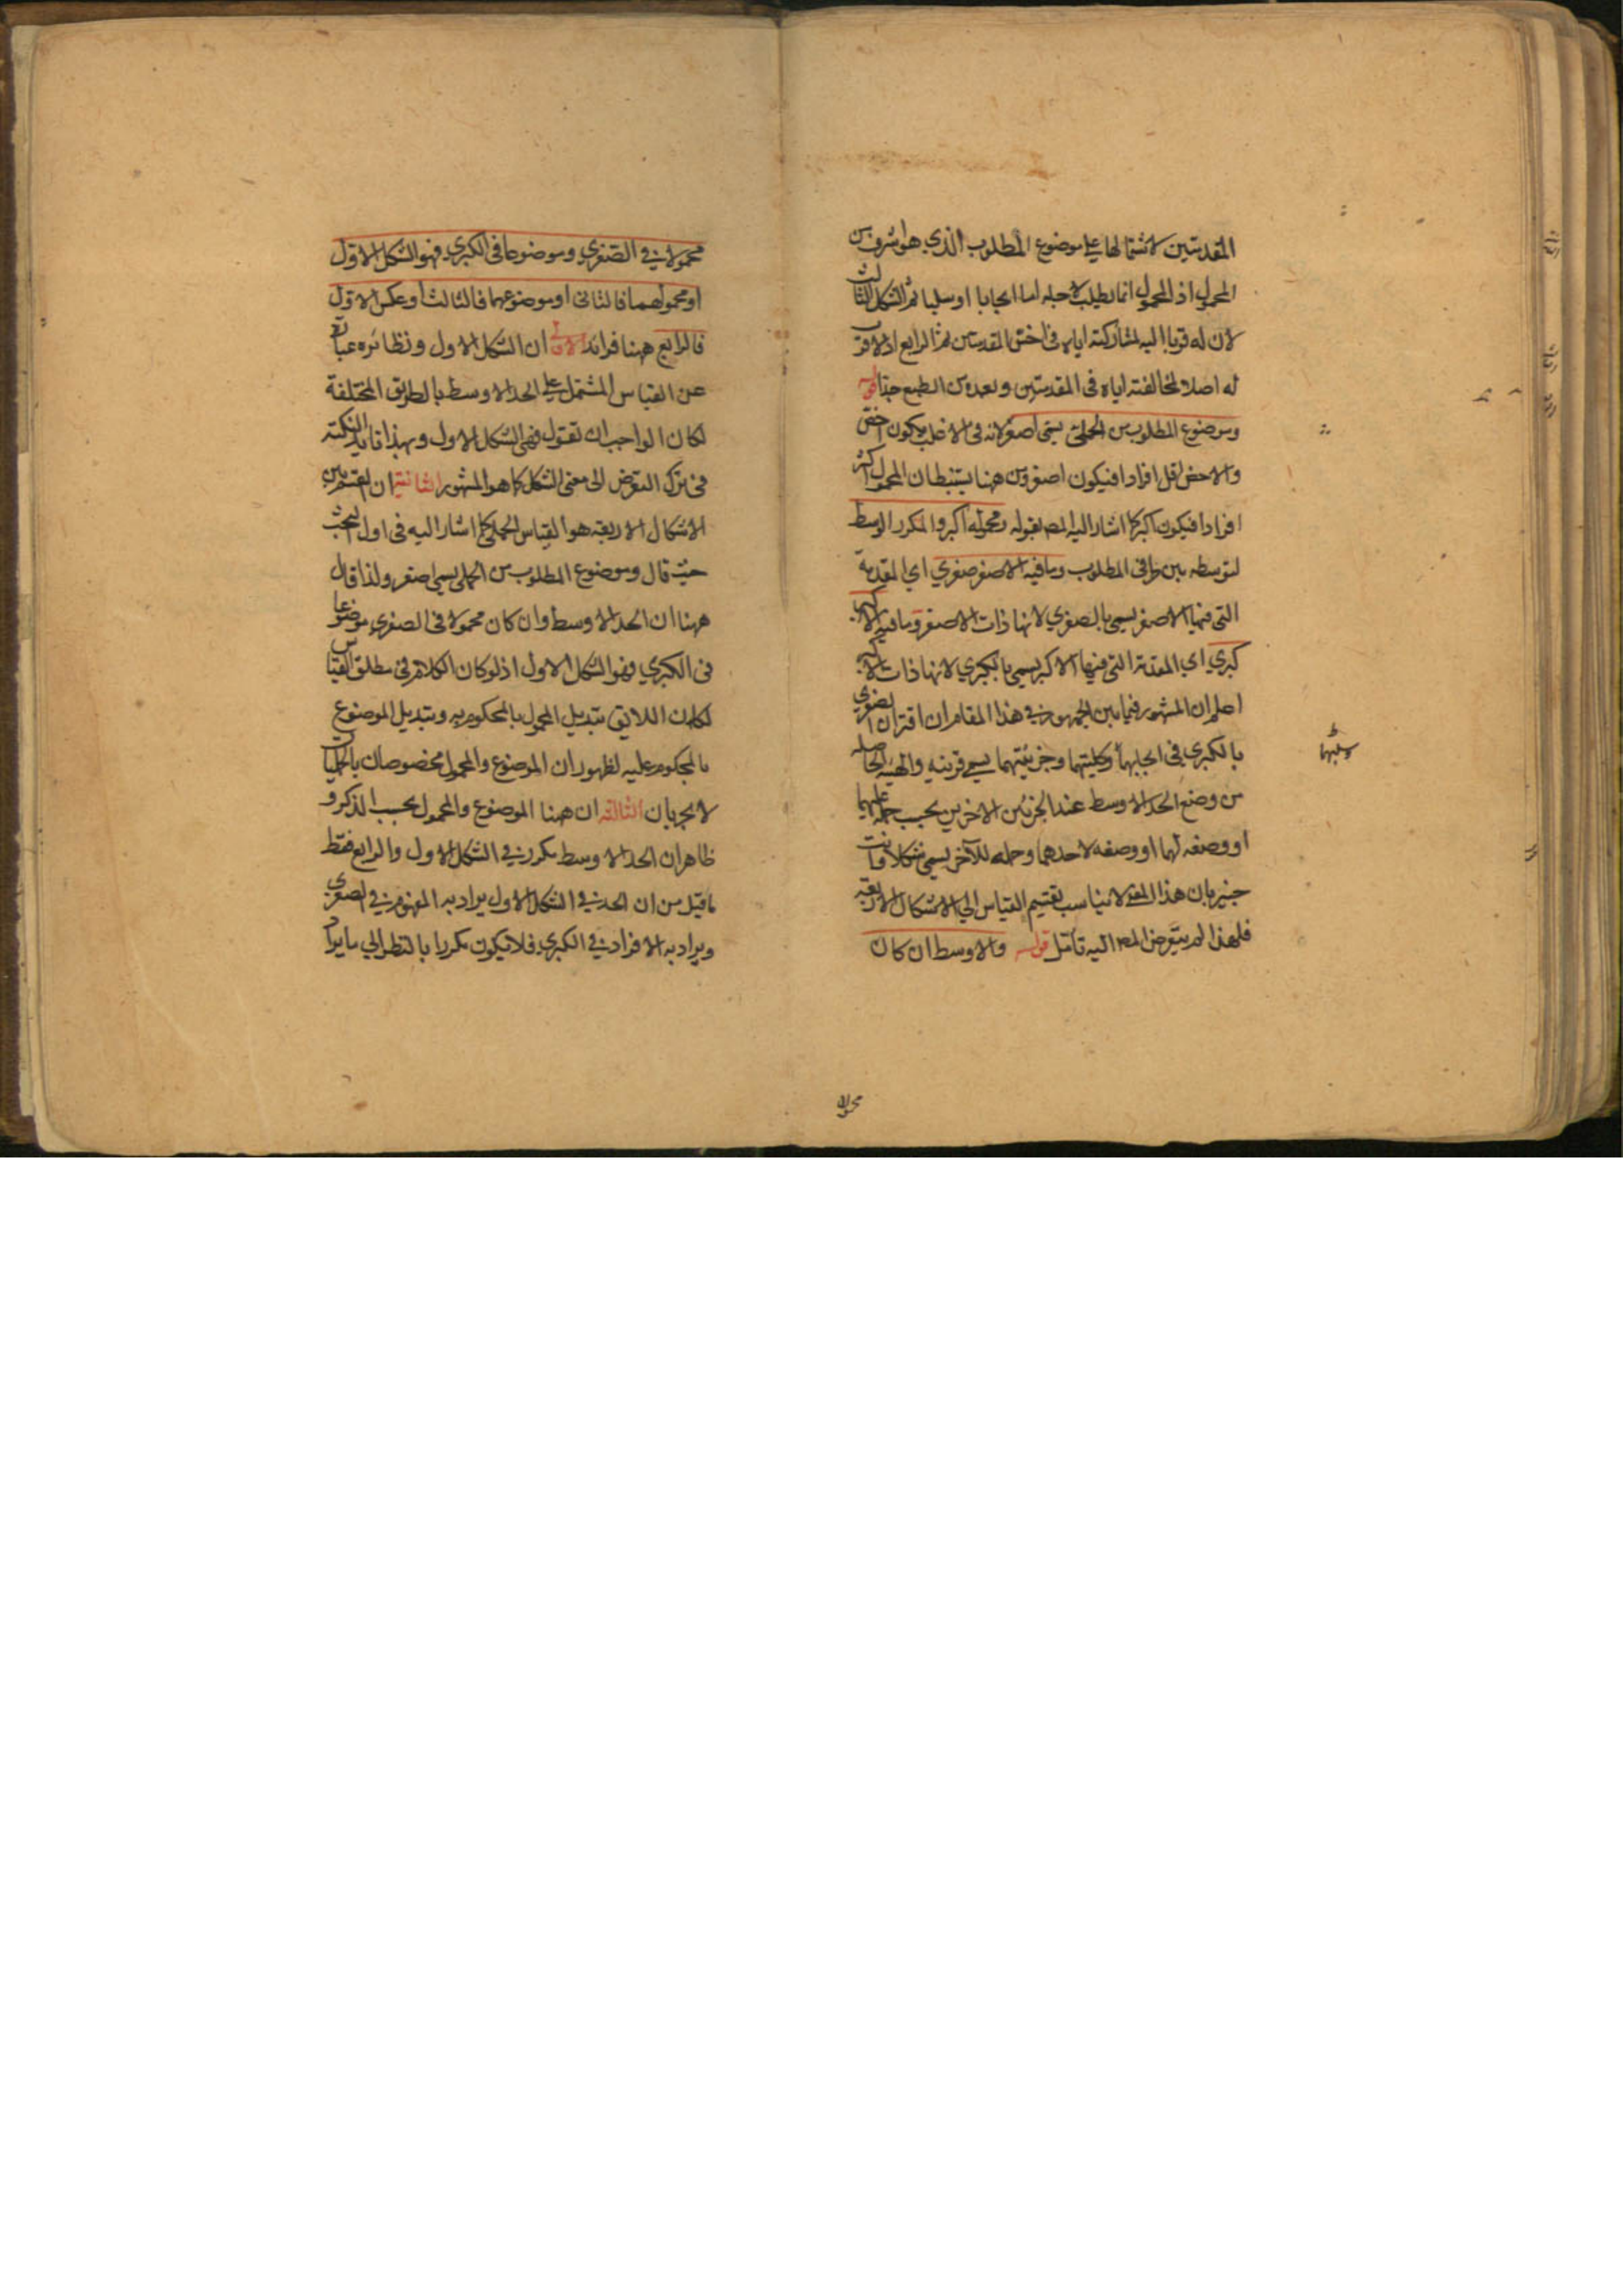 المقدمتين لاشتمالها على موضوع المطلوب الذي هو اشرف من
المحمول اذ المحمول انما يطلب لاجله اما ايجابا او سلبا ثم الشكل الثالث
لان له قربا اليه لمشاركته اياه فى اخس المقدمتين ثم الرابع اذ لا قرب
له اصلا لمخالفته اياه فى المقدمتين وبعده من الطبع جدا قوله
وموضوع المطلوب من الحملي يسمى اصغر لانه فى الاغلب يكون اخص
والاخص اقل افرادا فيكون اصغر ومن ههنا يستنبط ان المحمول اكثر
افرادا فيكون اكبر كما اشار اليه المص بقوله ومحموله اكبر والمكرر اوسط
لتوسطه بين طرفى المطلوب وما فيه الاصغر صغري اي المقدمة
التى فيها الاصغر يسمى بالصغري لانها ذات الاصغر وما فيه الاكبر
كبري اي المقدمة التى فيها الاكبر يسمى بالكبري لانها ذات الاكبر
اعلم ان المشهور فيما بين الجمهور في هذا المقام ان اقتران الصغري
بالكبري فى ايجابهما وكليتهما وجزئيتهما يسمى قرينه والهيئة الحاصلة
وسلبهما
من وضع الحد الاوسط عند الجزئين الاخرين بحسب حمله عليهما
او وضعه لهما او وضعه لاحدهما وحمله للآخر يسمى شكلا وانت
خبير بان هذا المعنى لا يناسب تقسيم القياس الي الاشكال الاربعة
فلهذا لم يتعرض المص اليه تأمل قوله والاوسط ان كان
محمولا
محمولا في الصغري وموضوعا فى الكبري فهو الشكل الاول
او محمولهما فالثانى او موضوعهما فالثالث او عكس الاول
فالرابع ههنا فرائد الاولى ان الشكل الاول ونظائره عبارة
عن القياس المشتمل على الحد الاوسط بالطريق المختلفة
لكان الواجب ان تقول فهى الشكل الاول وبهذا النكتة
فى ترك التعرض الى معنى الشكل كما هو المشهور الثانية ان المقسم بين
الاشكال الاربعة هو القياس الحملي كما اشار اليه فى اول البحث
حيث قال وموضوع المطلوب من الحملى يسمى اصغر ولذا قال
ههنا ان الحد الاوسط وان كان محمولا فى الصغري موضوعا
فى الكبري فهو الشكل الاول اذ لو كان الكلام فى مطلق القياس
لكان اللائق تبديل المحمول بالمحكوم به وتبديل الموضوع
بالمحكوم عليه لظهور ان الموضوع والمحمول مخصوصان بالحمليات
لا يجريان الثالثة ان ههنا الموضوع والمحمول بحسب الذكر و
ظاهر ان الحد الاوسط مكرر في الشكل الاول والرابع فقط
ما قيل من ان الحد في الشكل الاول يراد به المفهوم في الصغري
ويراد به الافراد في الكبري فلا تكون مكررا بالنظر الي ما يراد